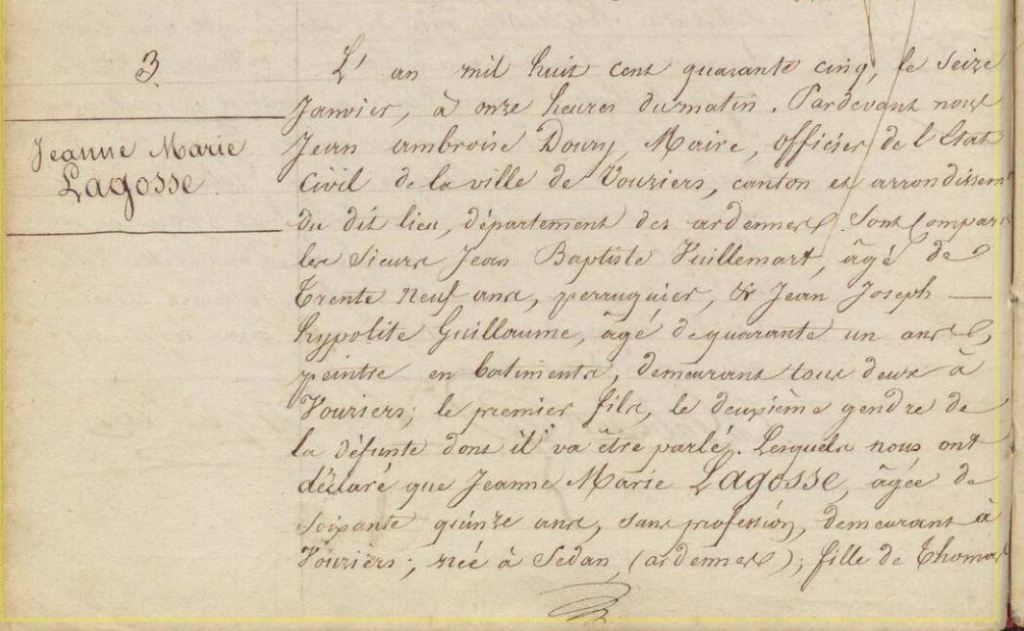 3
Jeanne Marie
Lagosse
L'an mil huit cent quarante cinq, le seize
Janvier, à onze heures du matin. Pardevant nous
Jean ambroise Doury, Maire, officier de l'Etat
Civil de la ville de Vouziers, canton et arrondissemt
du dit lieu, département des ardennes. Sont Comparu
les Sieurs Jean Baptiste Vuillemart, âgé de
trente neuf ans, perruquier, & Jean Joseph —
hypolite Guillaume, âgé de quarante un ans,
peintre en batiments, demeurant tous deux à
Vouziers; le premier fils, le deuxième gendre de
la défunte dont il va être parlé. Lesquels nous ont
déclaré que Jeanne Marie Lagosse, âgée de
soixante quinze ans, sans profession, demeurant à
Vouziers; née à Sedan (ardennes); fille de Thomas